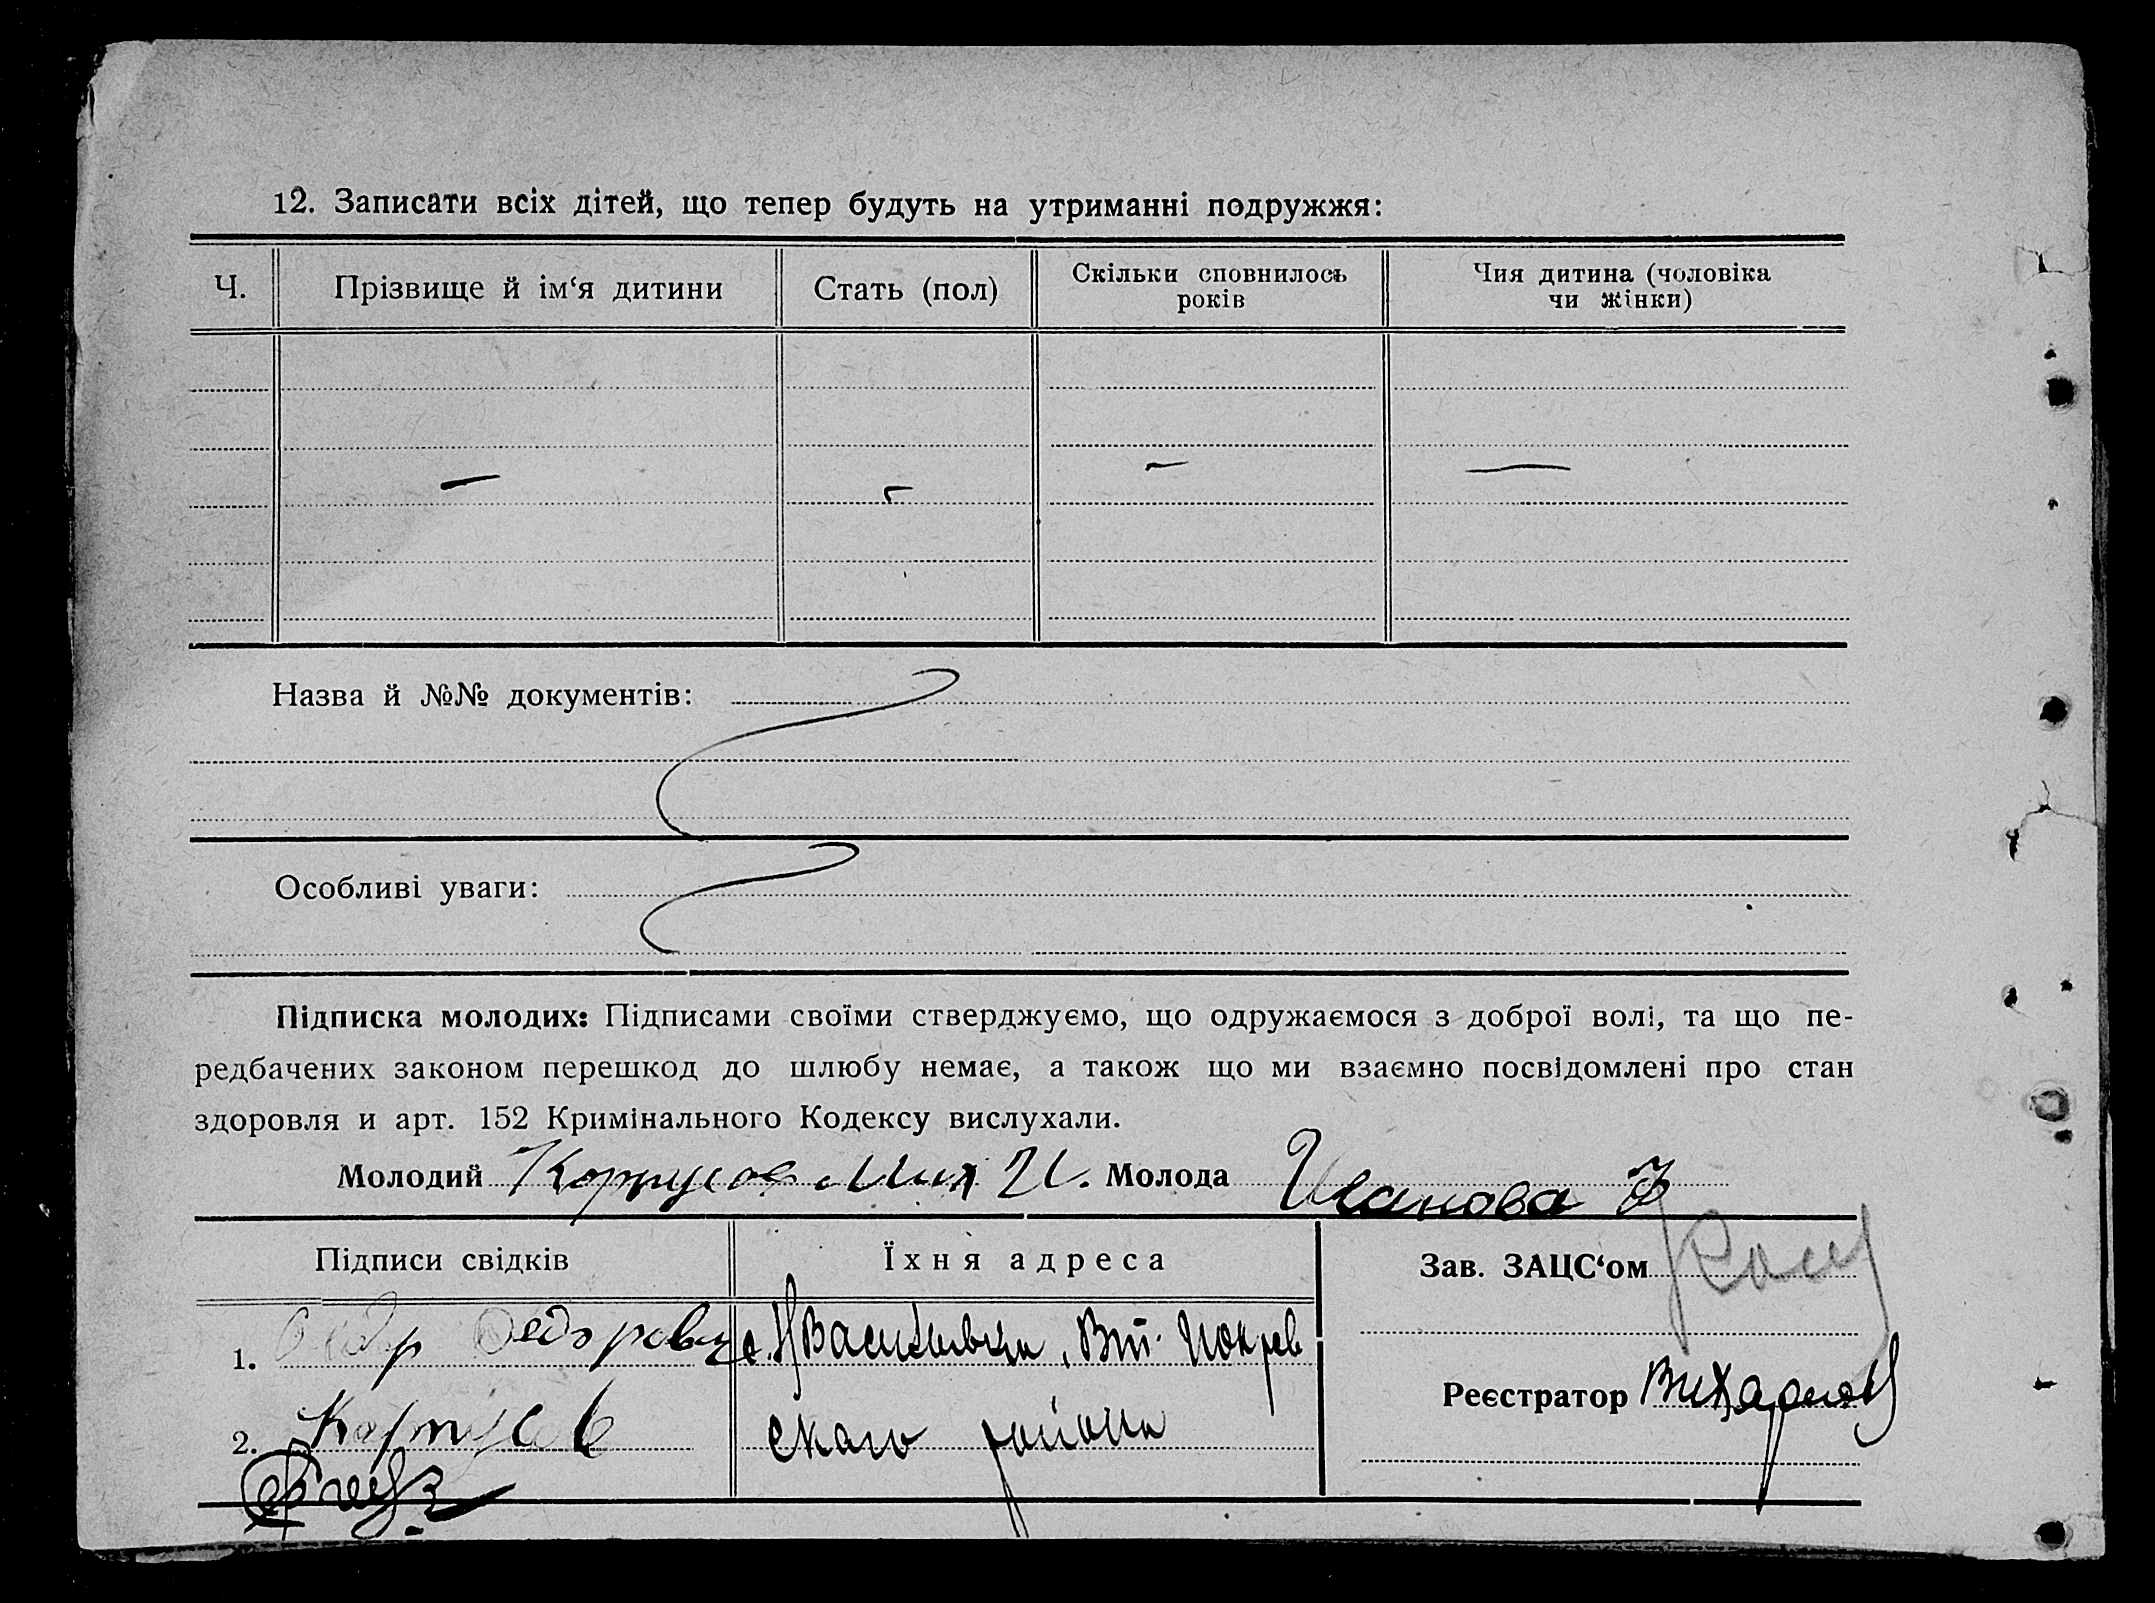 12. Записати всіх дітей, що тепер будуть на утриманні подружжя:
Ч.
Прізвище й ім‘я дитини
Стать (пол)
Скільки сповнилось
років
Чия дитина (чоловіка
чи жінки)
Назва й №№ документів:
Особливі уваги:
Підписка молодих: Підписами своїми стверджуємо, що одружаємося з доброї волі, та що пе-
редбачених законом перешкод до шлюбу немає, а також що ми взаємно посвідомлені про стан
здоровля и арт. 152 Кримінального Кодексу вислухали.
Молодий Корпусов Мих И. Молода Иванова
Підписи свідків
Їхня адреса
Зав. ЗАЦС‘ом
1. Федорович
2. Корпусов
ского района
Реєстратор